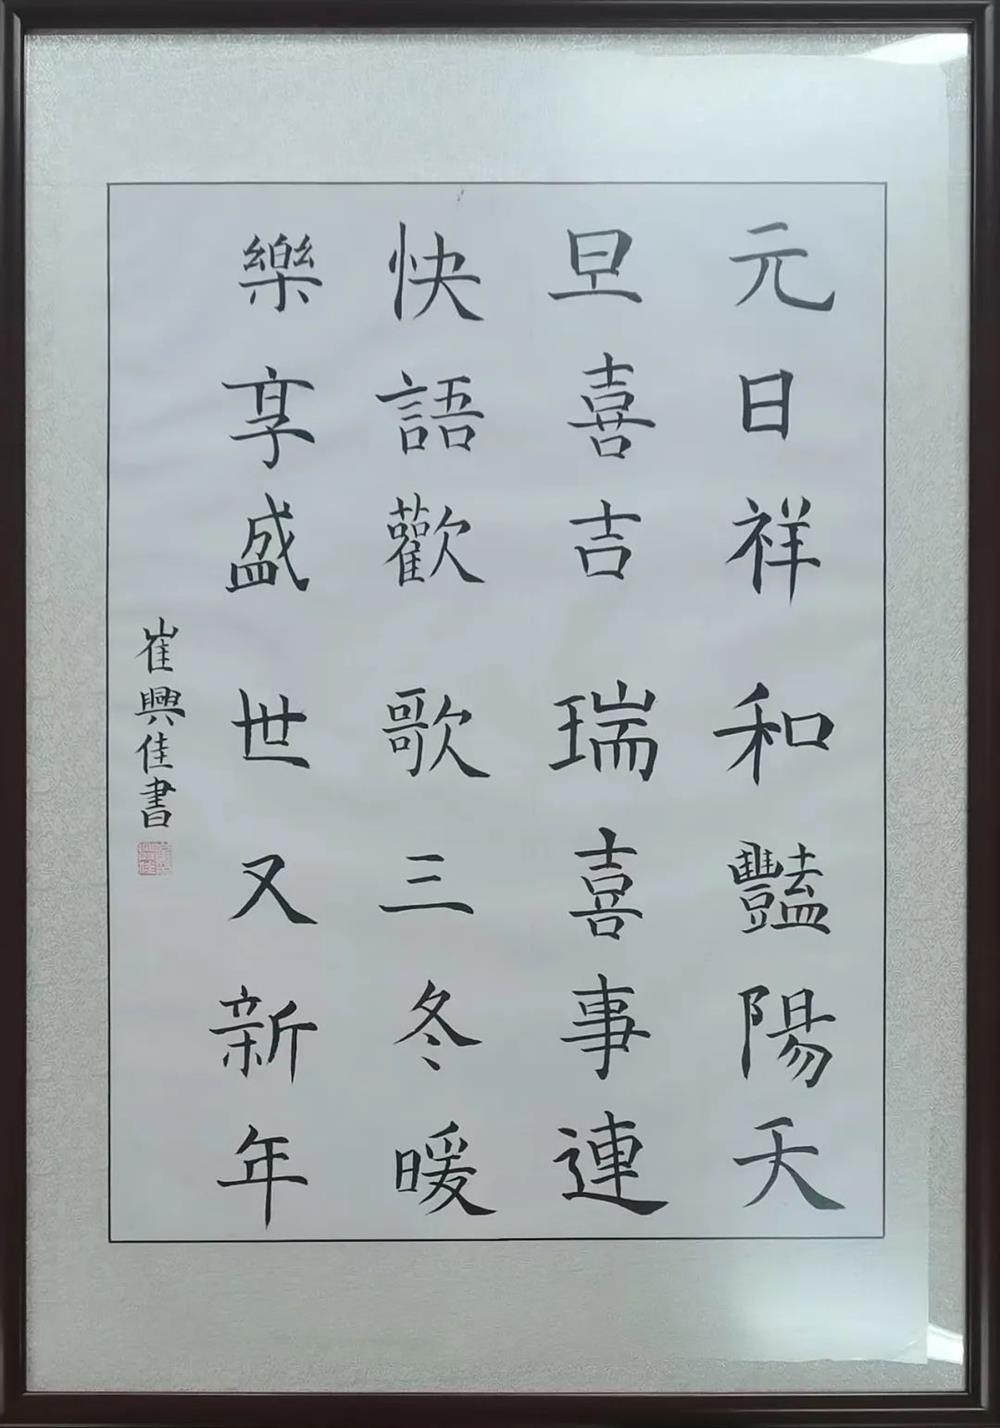 元日祥和豔陽天
旦喜吉瑞喜事連
快語歡歌三冬暖
樂享盛世又新年
崔興佳書